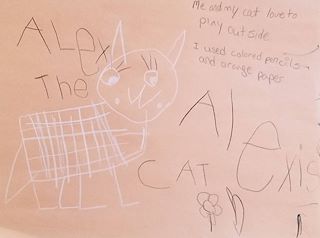 Me and my cat love to
play outside
I used colored pencils
and orange paper
ALex
The
CAT
Alexis